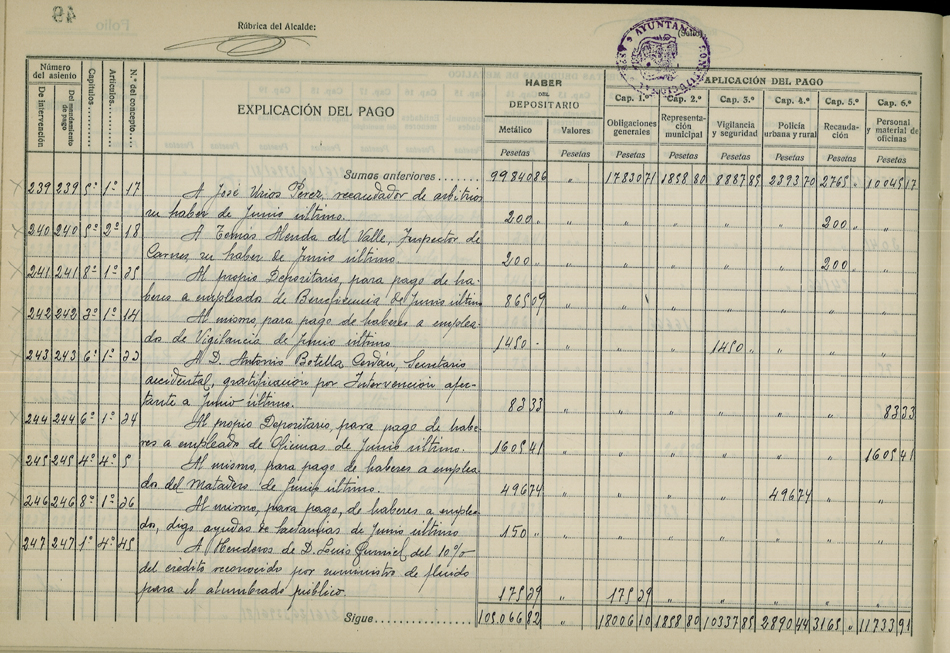 49
Folio
Rúbrica del Alcalde:
(Sello)
AYUNTAM CONSTITUCIONAL
Número del asiento
De intervención
Del mandamiento de pago
Capítulos
Artículos
N.º del concepto
EXPLICACIÓN DEL PAGO
HABER DEL DEPOSITARIO
Metálico
Pesetas
Valores
Pesetas
APLICACIÓN DEL PAGO
Cap. 1.º Cap. 2.º Cap. 3.º Cap. 4.º Cap. 5.º Cap. 6.º
Obligaciones generales
Representación municipal
Vigilancia y seguridad
Policía urbana y rural
Recaudación
Personal y material de oficinas
Pesetas Pesetas Pesetas Pesetas Pesetas Pesetas
Sumas anteriores....... 99840 86 " 17830 71 1858 80 8887 85 2393 70 2765 " 10045 17
239 239 5º 1º 17 A José Urios Perez, recaudador de arbitrios
su haber de Junio último. 200 " " " " " " 200 " "
240 240 5º 2º 18 A Tomas Alenda del Valle, Inspector de
Carnes su haber de Junio último. 200 " " " " " " 200 " "
241 241 8º 1º 35 Al propio Depositario, para pago de ha-
beres a empleado de Beneficencia de Junio último 865 09 "
242 242 3º 1º 14 Al mismo, para pago de haberes a emplea-
dos de Vigilancia de Junio último 1450 - " " " 1450 " " " "
243 243 6º 1º 23 A D. Antonio Botella Cerdán, Secretario
accidental, gratificación por Intervención afec-
tante a Junio último. 83 33 " " " " " " 83 33
244 244 6º 1º 24 Al propio Depositario, para pago de habe-
res a empleado de Oficinas de Junio último. 1605 41 " " " " " " 1605 41
245 245 4º 4º 5 Al mismo, para pago de haberes a emplea-
dos del Matadero de Junio último. 496 74 " " " " 496 74 " "
246 246 8º 1º 36 Al mismo, para pago, de haberes a emplea-
do, digo ayudas de lactancias de Junio último 150 " " " " " " " "
247 247 1º 4º 45 A Herederos de D. Luis Gumiel del 10%
del crédito reconocido por suministro de fluido
para el alumbrado público. 175 39 " 175 39 " " " " "
Sigue.................. 105.066 82 " 18006 10 1858 80 10337 85 2890 44 3165 " 11733 91